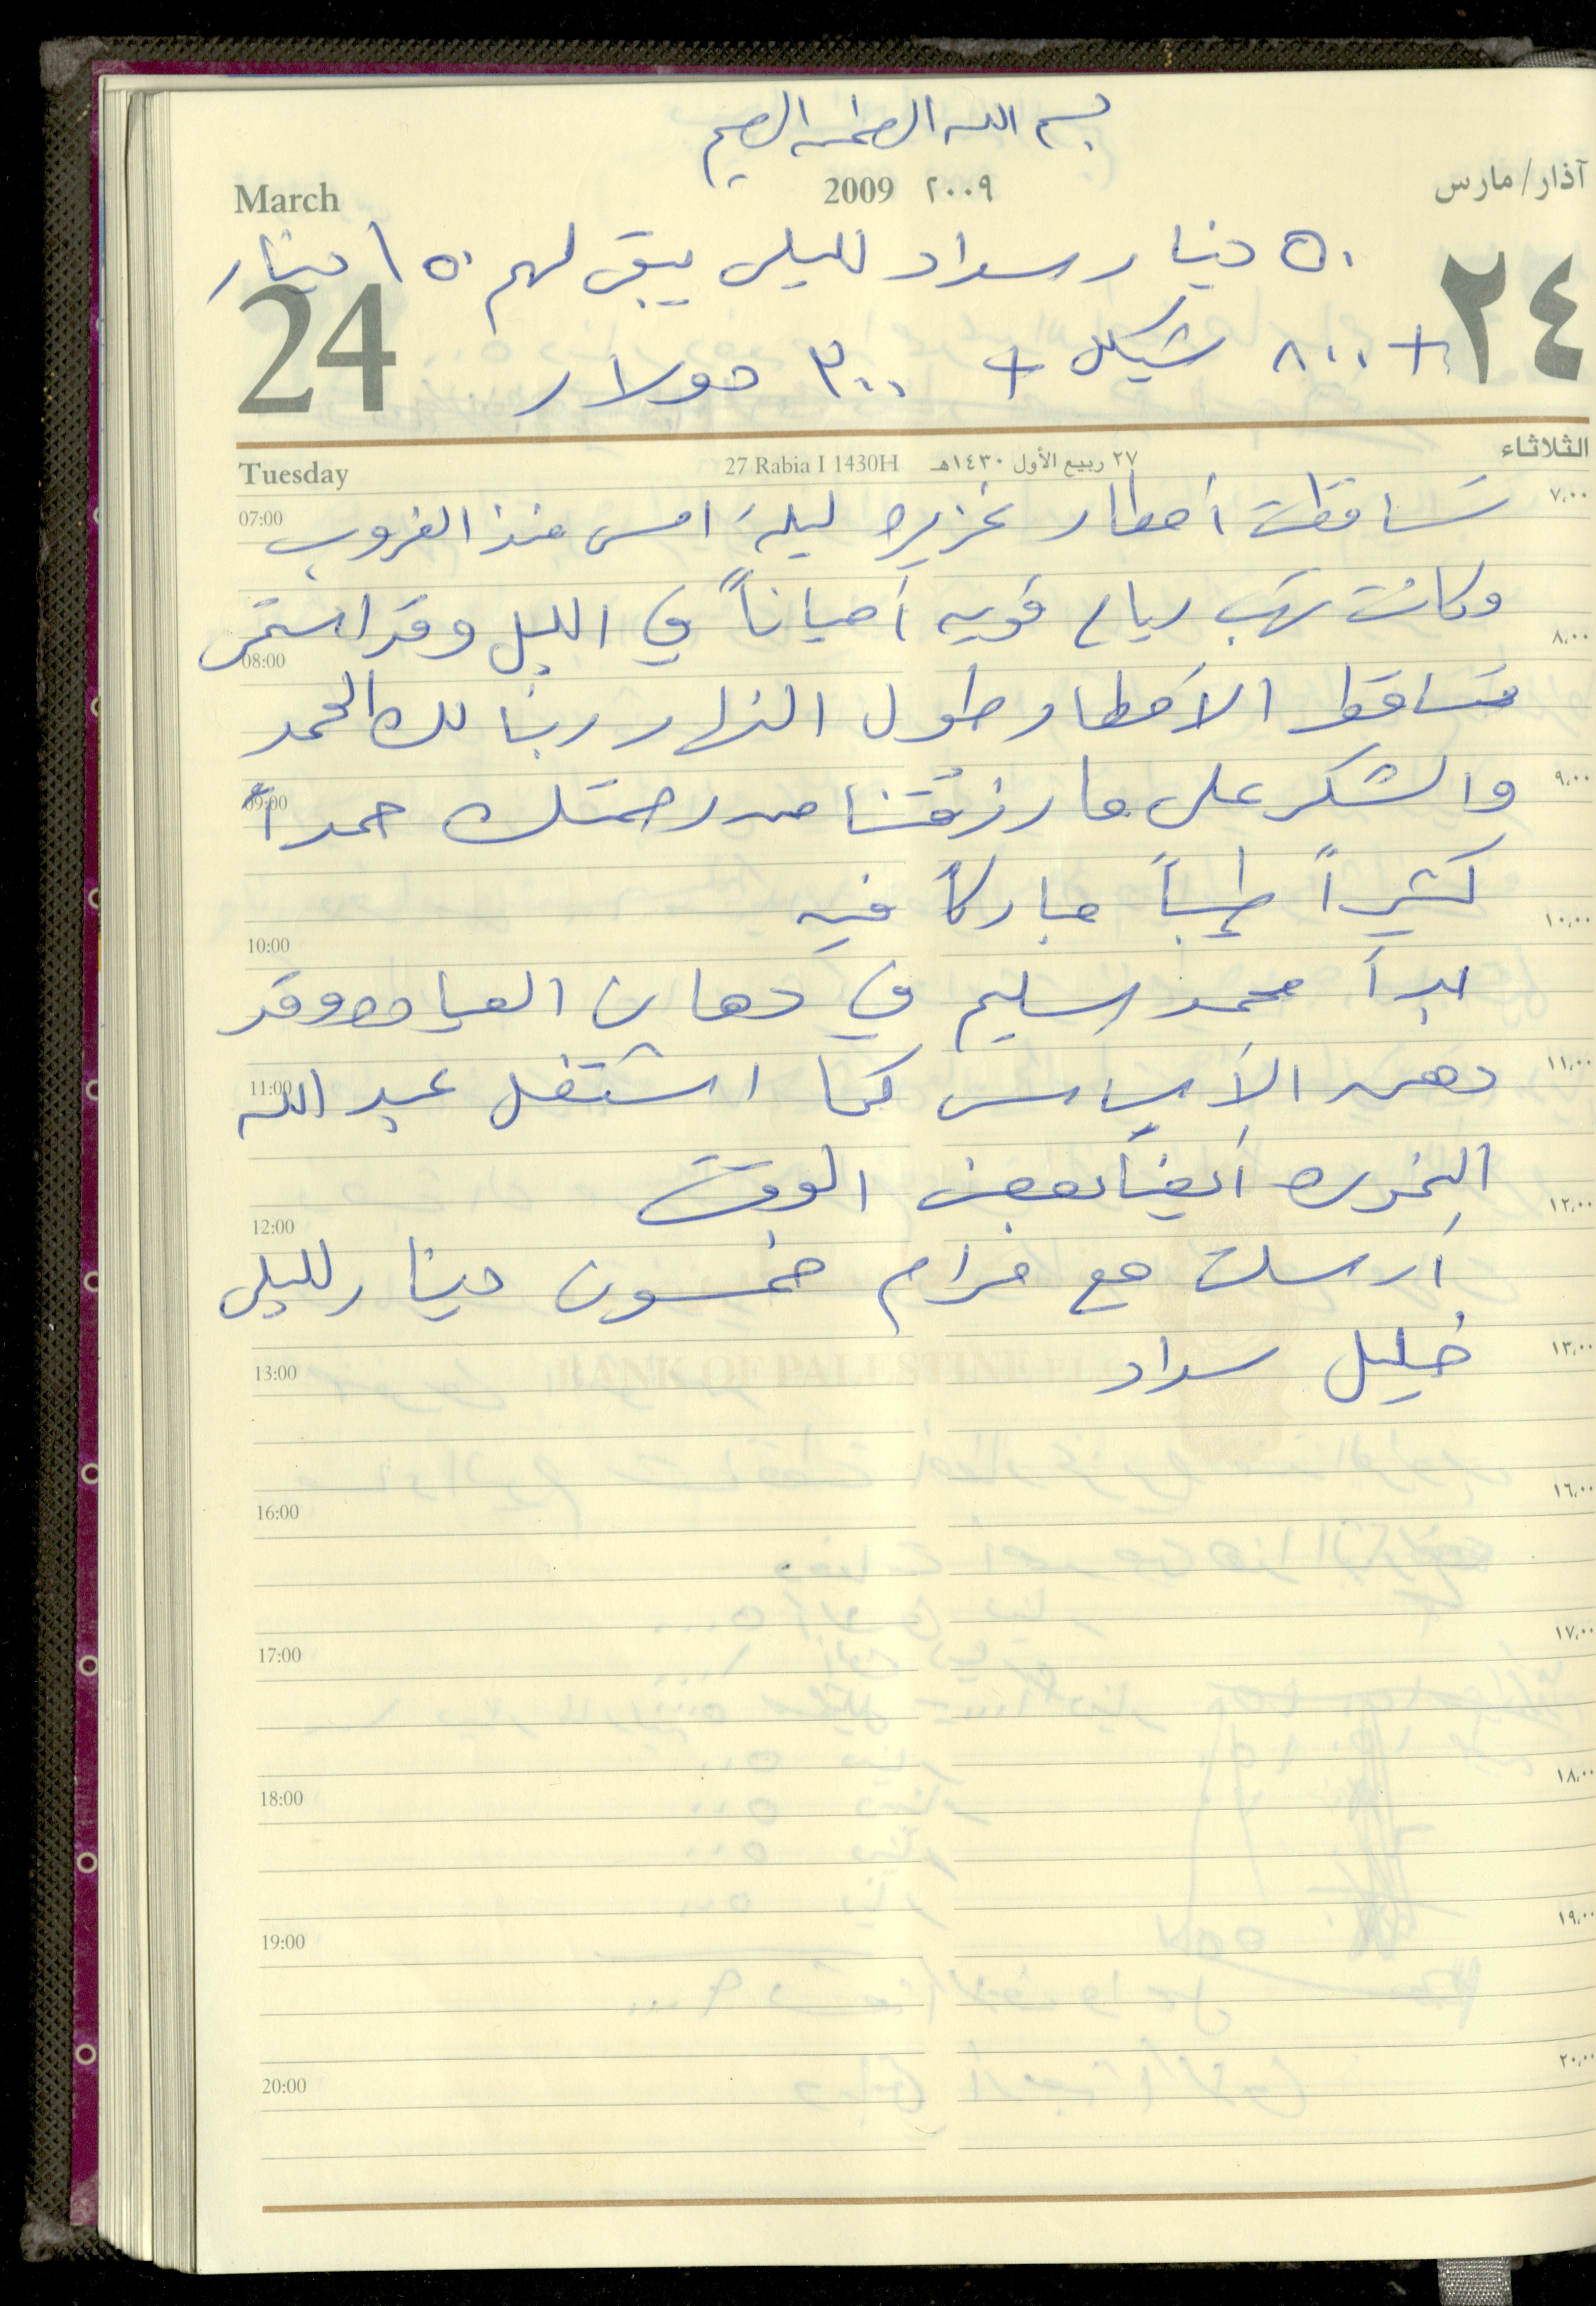 بسم الله الرحمن الرحيم
March 2009 ٢٠٠٩ آذار/مارس
٥٠ دينار سداد لليلى يبقى لهم ١٥٠ دينار
24 ٢٤
+ ٨٠٠ شيكل + ٣٠٠ دولار
Tuesday 27 Rabia I 1430H ٢٧ ربيع الأول ١٤٣٠هـ الثلاثاء
07:00 ٧,٠٠
تساقطت أمطار غزيره ليلة امس منذ الغروب
وكانت تهب رياح قويه أحياناً في الليل وقد استمر
08:00 ٨,٠٠
تساقط الأمطار طول النهار ربنا لك الحمد
والشكر على ما رزقتنا من رحمتك حمداً
09:00 ٩,٠٠
كثيراً طيباً مباركاً فيه
10:00 ١٠,٠٠
بدأ محمد سليم في دهان العياده وقد
دهن الأساس كما اشتغل عبد الله
11:00 ١١,٠٠
أيضاً بعض الوقت
12:00 ١٢,٠٠
أرسلت مع مرام خمسون دينار لليلى
خليل سداد
13:00 ١٣,٠٠
BANK OF PALESTINE
16:00 ١٦,٠٠
17:00 ١٧,٠٠
18:00 ١٨,٠٠
19:00 ١٩,٠٠
20:00 ٢٠,٠٠